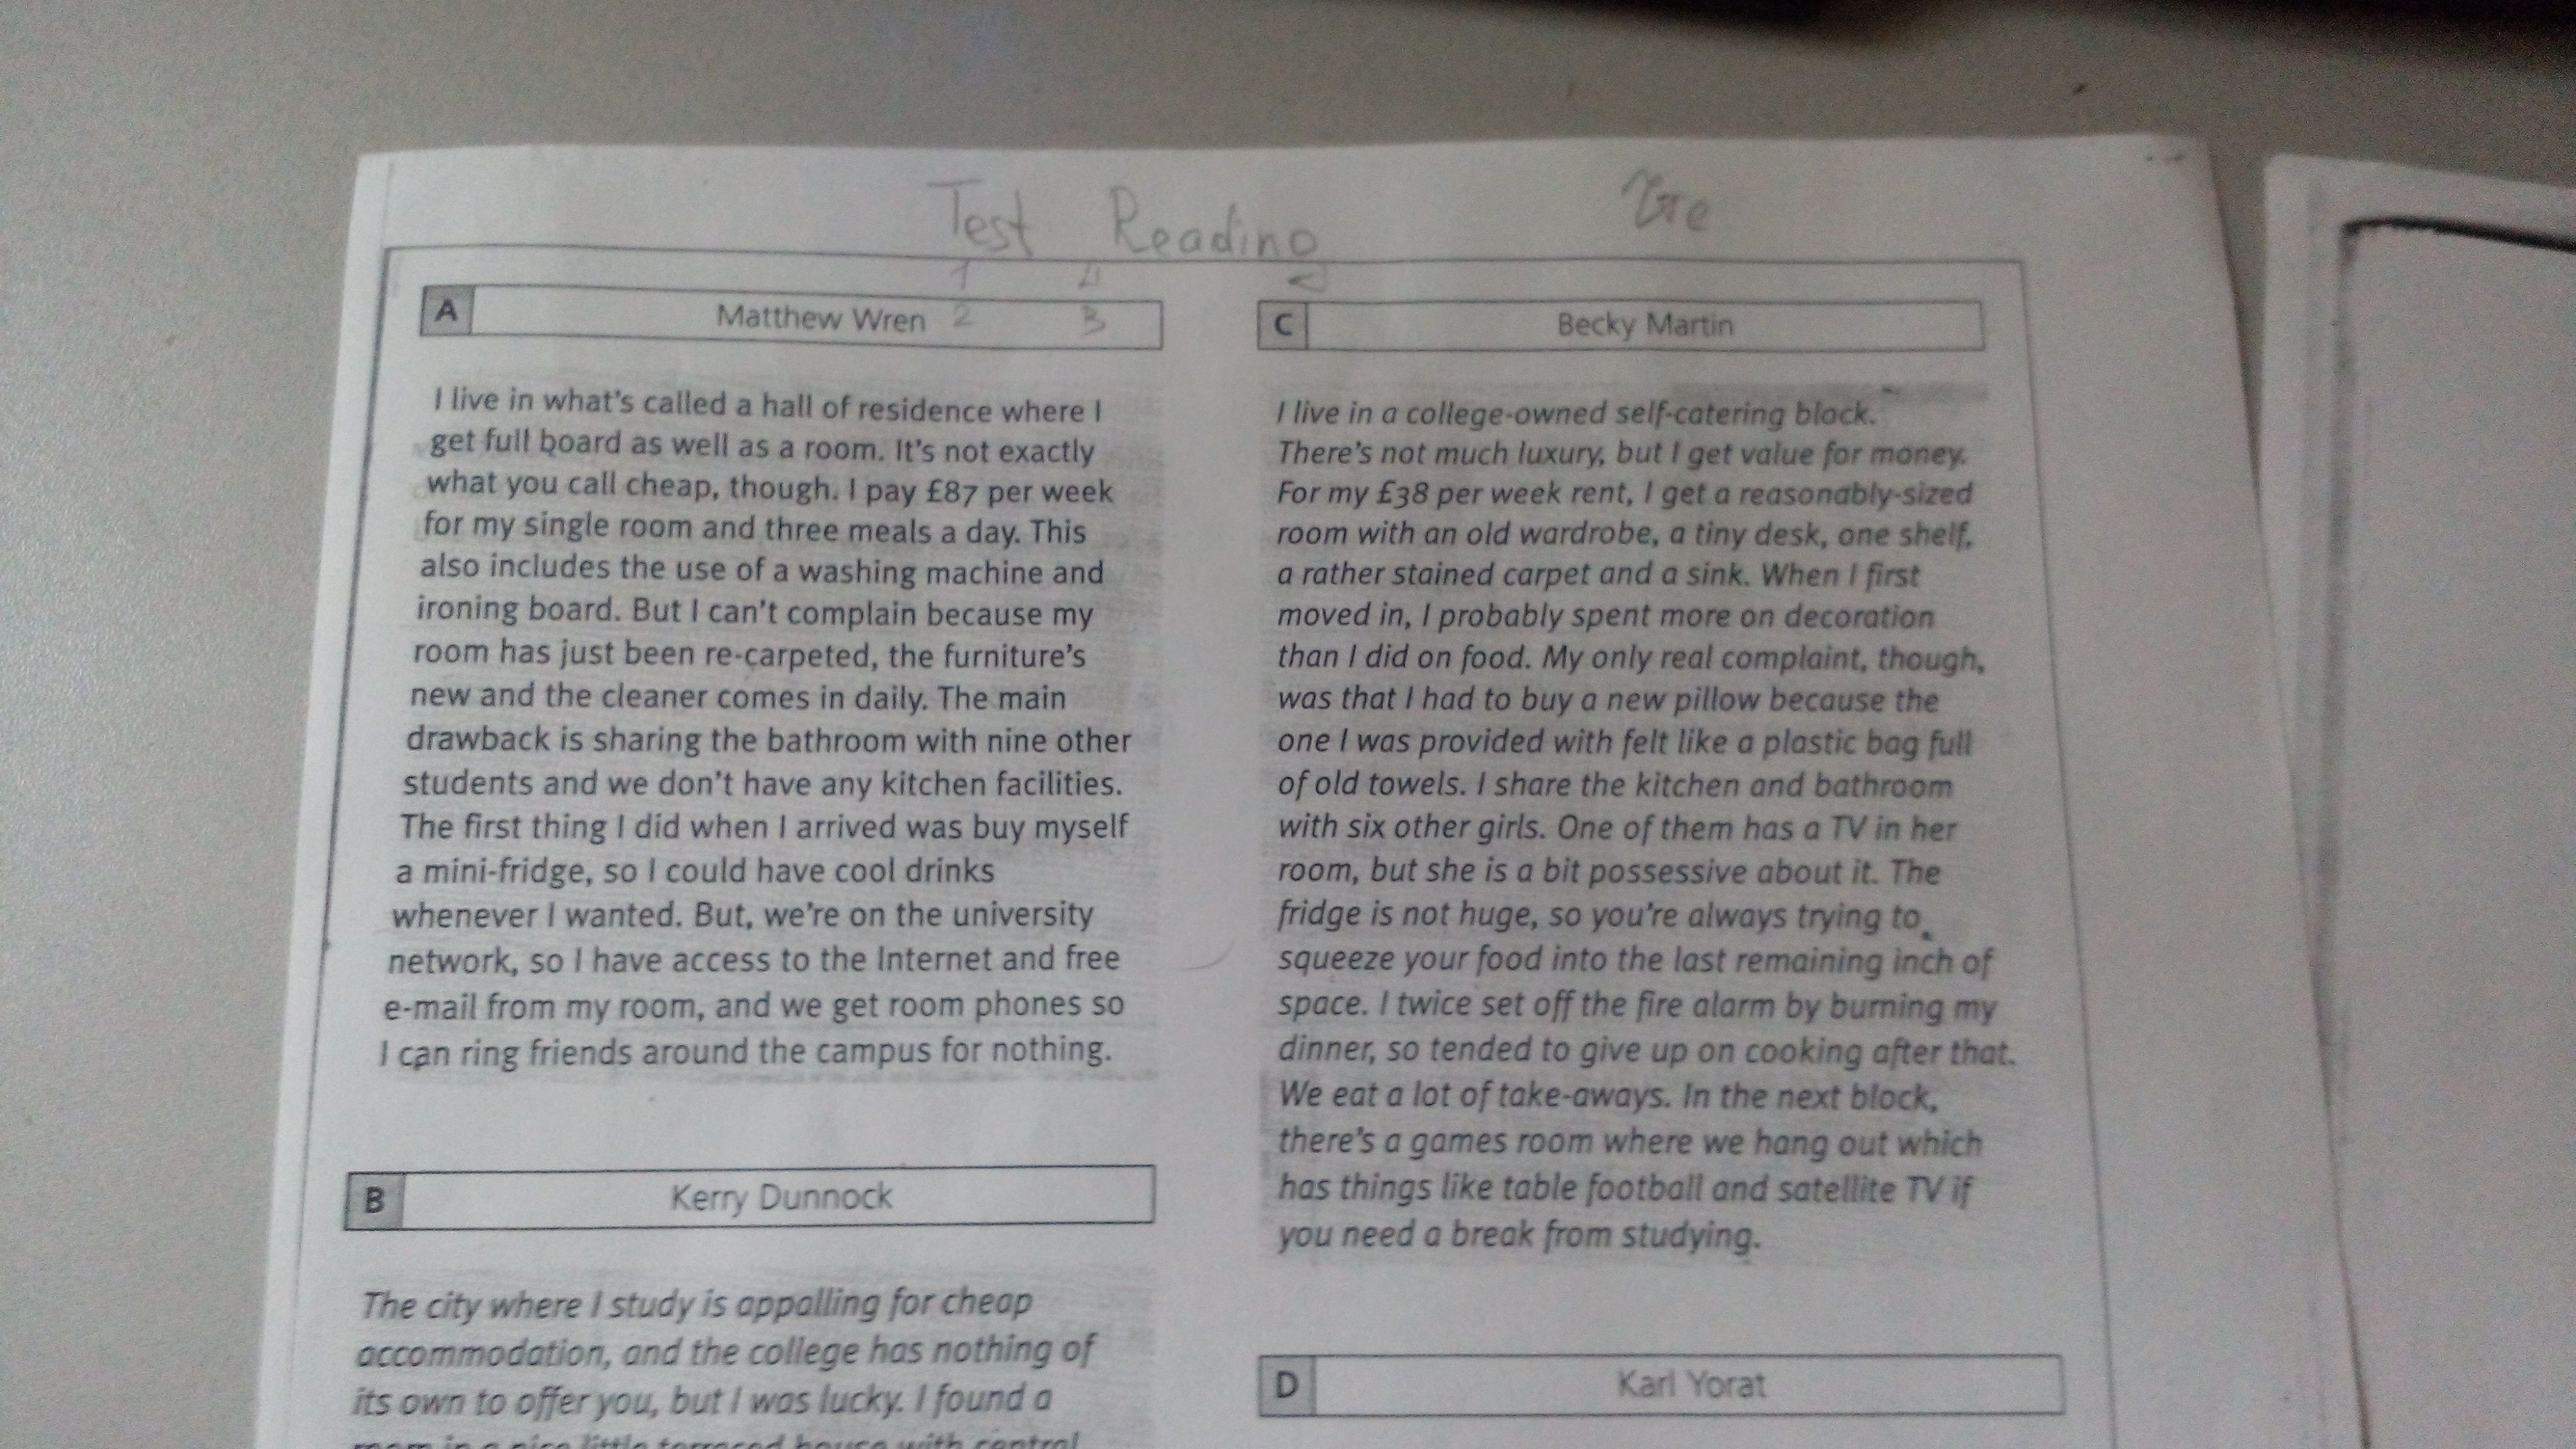 Test Reading
A Matthew Wren 2 3
I live in what's called a hall of residence where I
get full board as well as a room. It's not exactly
what you call cheap, though. I pay £87 per week
for my single room and three meals a day. This
also includes the use of a washing machine and
ironing board. But I can't complain because my
room has just been re-carpeted, the furniture's
new and the cleaner comes in daily. The main
drawback is sharing the bathroom with nine other
students and we don't have any kitchen facilities.
The first thing I did when I arrived was buy myself
a mini-fridge, so I could have cool drinks
whenever I wanted. But, we're on the university
network, so I have access to the Internet and free
e-mail from my room, and we get room phones so
I can ring friends around the campus for nothing.
B Kerry Dunnock
The city where I study is appalling for cheap
accommodation, and the college has nothing of
its own to offer you, but I was lucky. I found a
room in a nice little terraced house with central
C Becky Martin
I live in a college-owned self-catering block.
There's not much luxury, but I get value for money.
For my £38 per week rent, I get a reasonably-sized
room with an old wardrobe, a tiny desk, one shelf,
a rather stained carpet and a sink. When I first
moved in, I probably spent more on decoration
than I did on food. My only real complaint, though,
was that I had to buy a new pillow because the
one I was provided with felt like a plastic bag full
of old towels. I share the kitchen and bathroom
with six other girls. One of them has a TV in her
room, but she is a bit possessive about it. The
fridge is not huge, so you're always trying to
squeeze your food into the last remaining inch of
space. I twice set off the fire alarm by burning my
dinner, so tended to give up on cooking after that.
We eat a lot of take-aways. In the next block,
there's a games room where we hang out which
has things like table football and satellite TV if
you need a break from studying.
D Karl Yorat